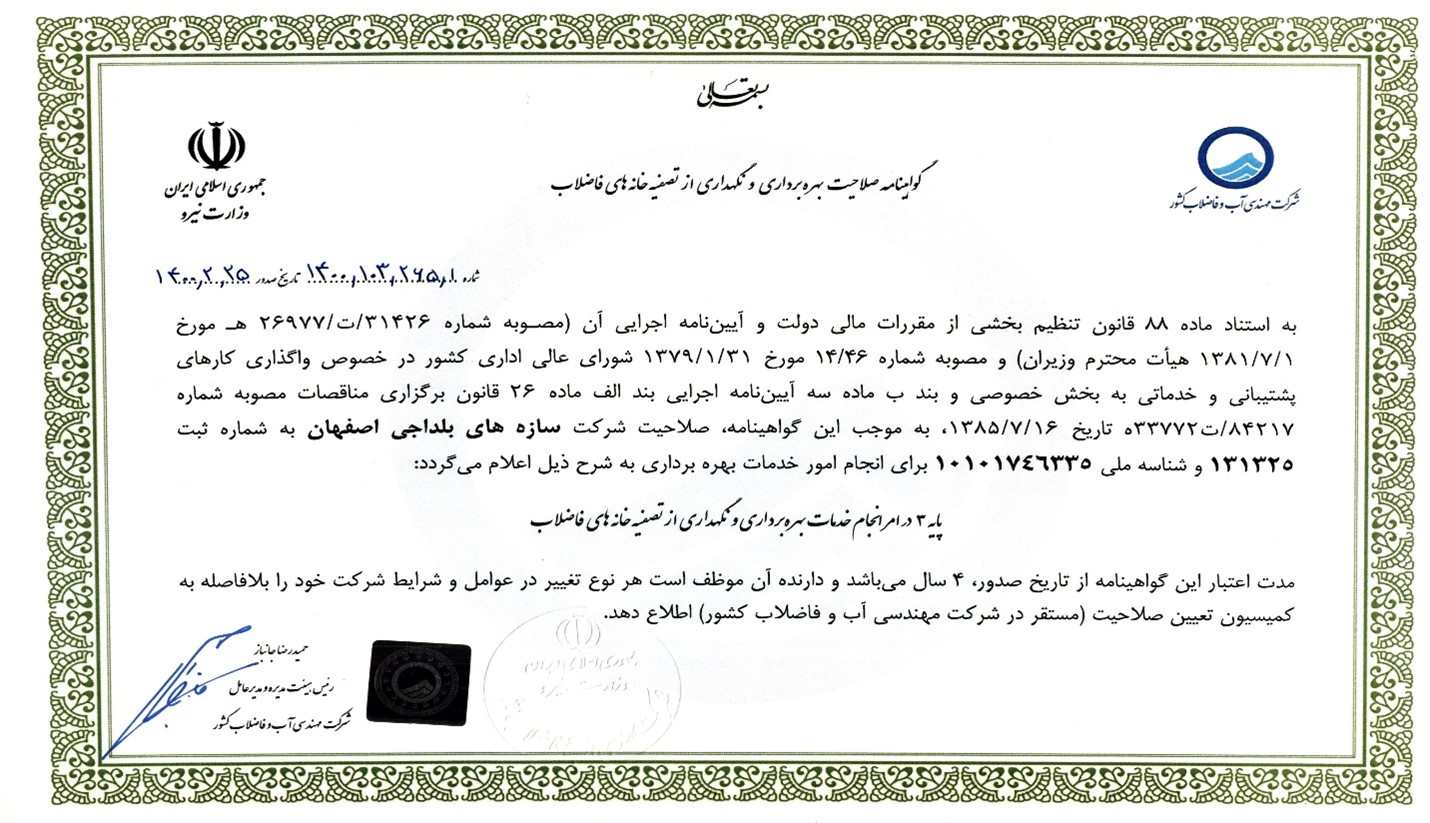 بسمه تعالی
جمهوری اسلامی ایران
وزارت نیرو
گواهینامه صلاحیت بهره برداری و نگهداری از تصفیه خانه های فاضلاب
شرکت مهندسی آب و فاضلاب کشور
شماره ۱۴۰۰,۱۰۳,۲۶۵,۱ تاریخ صدور ۱۴۰۰,۲,۲۵
به استناد ماده ۸۸ قانون تنظیم بخشی از مقررات مالی دولت و آیین‌نامه اجرایی آن (مصوبه شماره ۳۱۴۲۶/ت/۲۶۹۷۷ هـ مورخ
۱۳۸۱/۷/۱ هیأت محترم وزیران) و مصوبه شماره ۱۴/۴۶ مورخ ۱۳۷۹/۱/۳۱ شورای عالی اداری کشور در خصوص واگذاری کارهای
پشتیبانی و خدماتی به بخش خصوصی و بند ب ماده سه آیین‌نامه اجرایی بند الف ماده ۲۶ قانون برگزاری مناقصات مصوبه شماره
۸۴۲۱۷/ت۳۳۷۷۲ه تاریخ ۱۳۸۵/۷/۱۶، به موجب این گواهینامه، صلاحیت شرکت سازه های بلداجی اصفهان به شماره ثبت
۱۳۱۳۲۵ و شناسه ملی ۱۰۱۰۱۷۴۶۳۳۵ برای انجام امور خدمات بهره برداری به شرح ذیل اعلام می‌گردد:
پایه ۳ در امر انجام خدمات بهره برداری و نگهداری از تصفیه خانه های فاضلاب
مدت اعتبار این گواهینامه از تاریخ صدور، ۴ سال می‌باشد و دارنده آن موظف است هر نوع تغییر در عوامل و شرایط شرکت خود را بلافاصله به
کمیسیون تعیین صلاحیت (مستقر در شرکت مهندسی آب و فاضلاب کشور) اطلاع دهد.
حمیدرضا جانباز
رئیس هیئت مدیره و مدیرعامل
شرکت مهندسی آب و فاضلاب کشور
جمهوری اسلامی ایران
وزارت نیرو